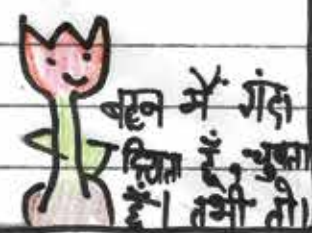 बटन में गंदा
दिखता हूँ, चुभता
हूँ। तभी तो।